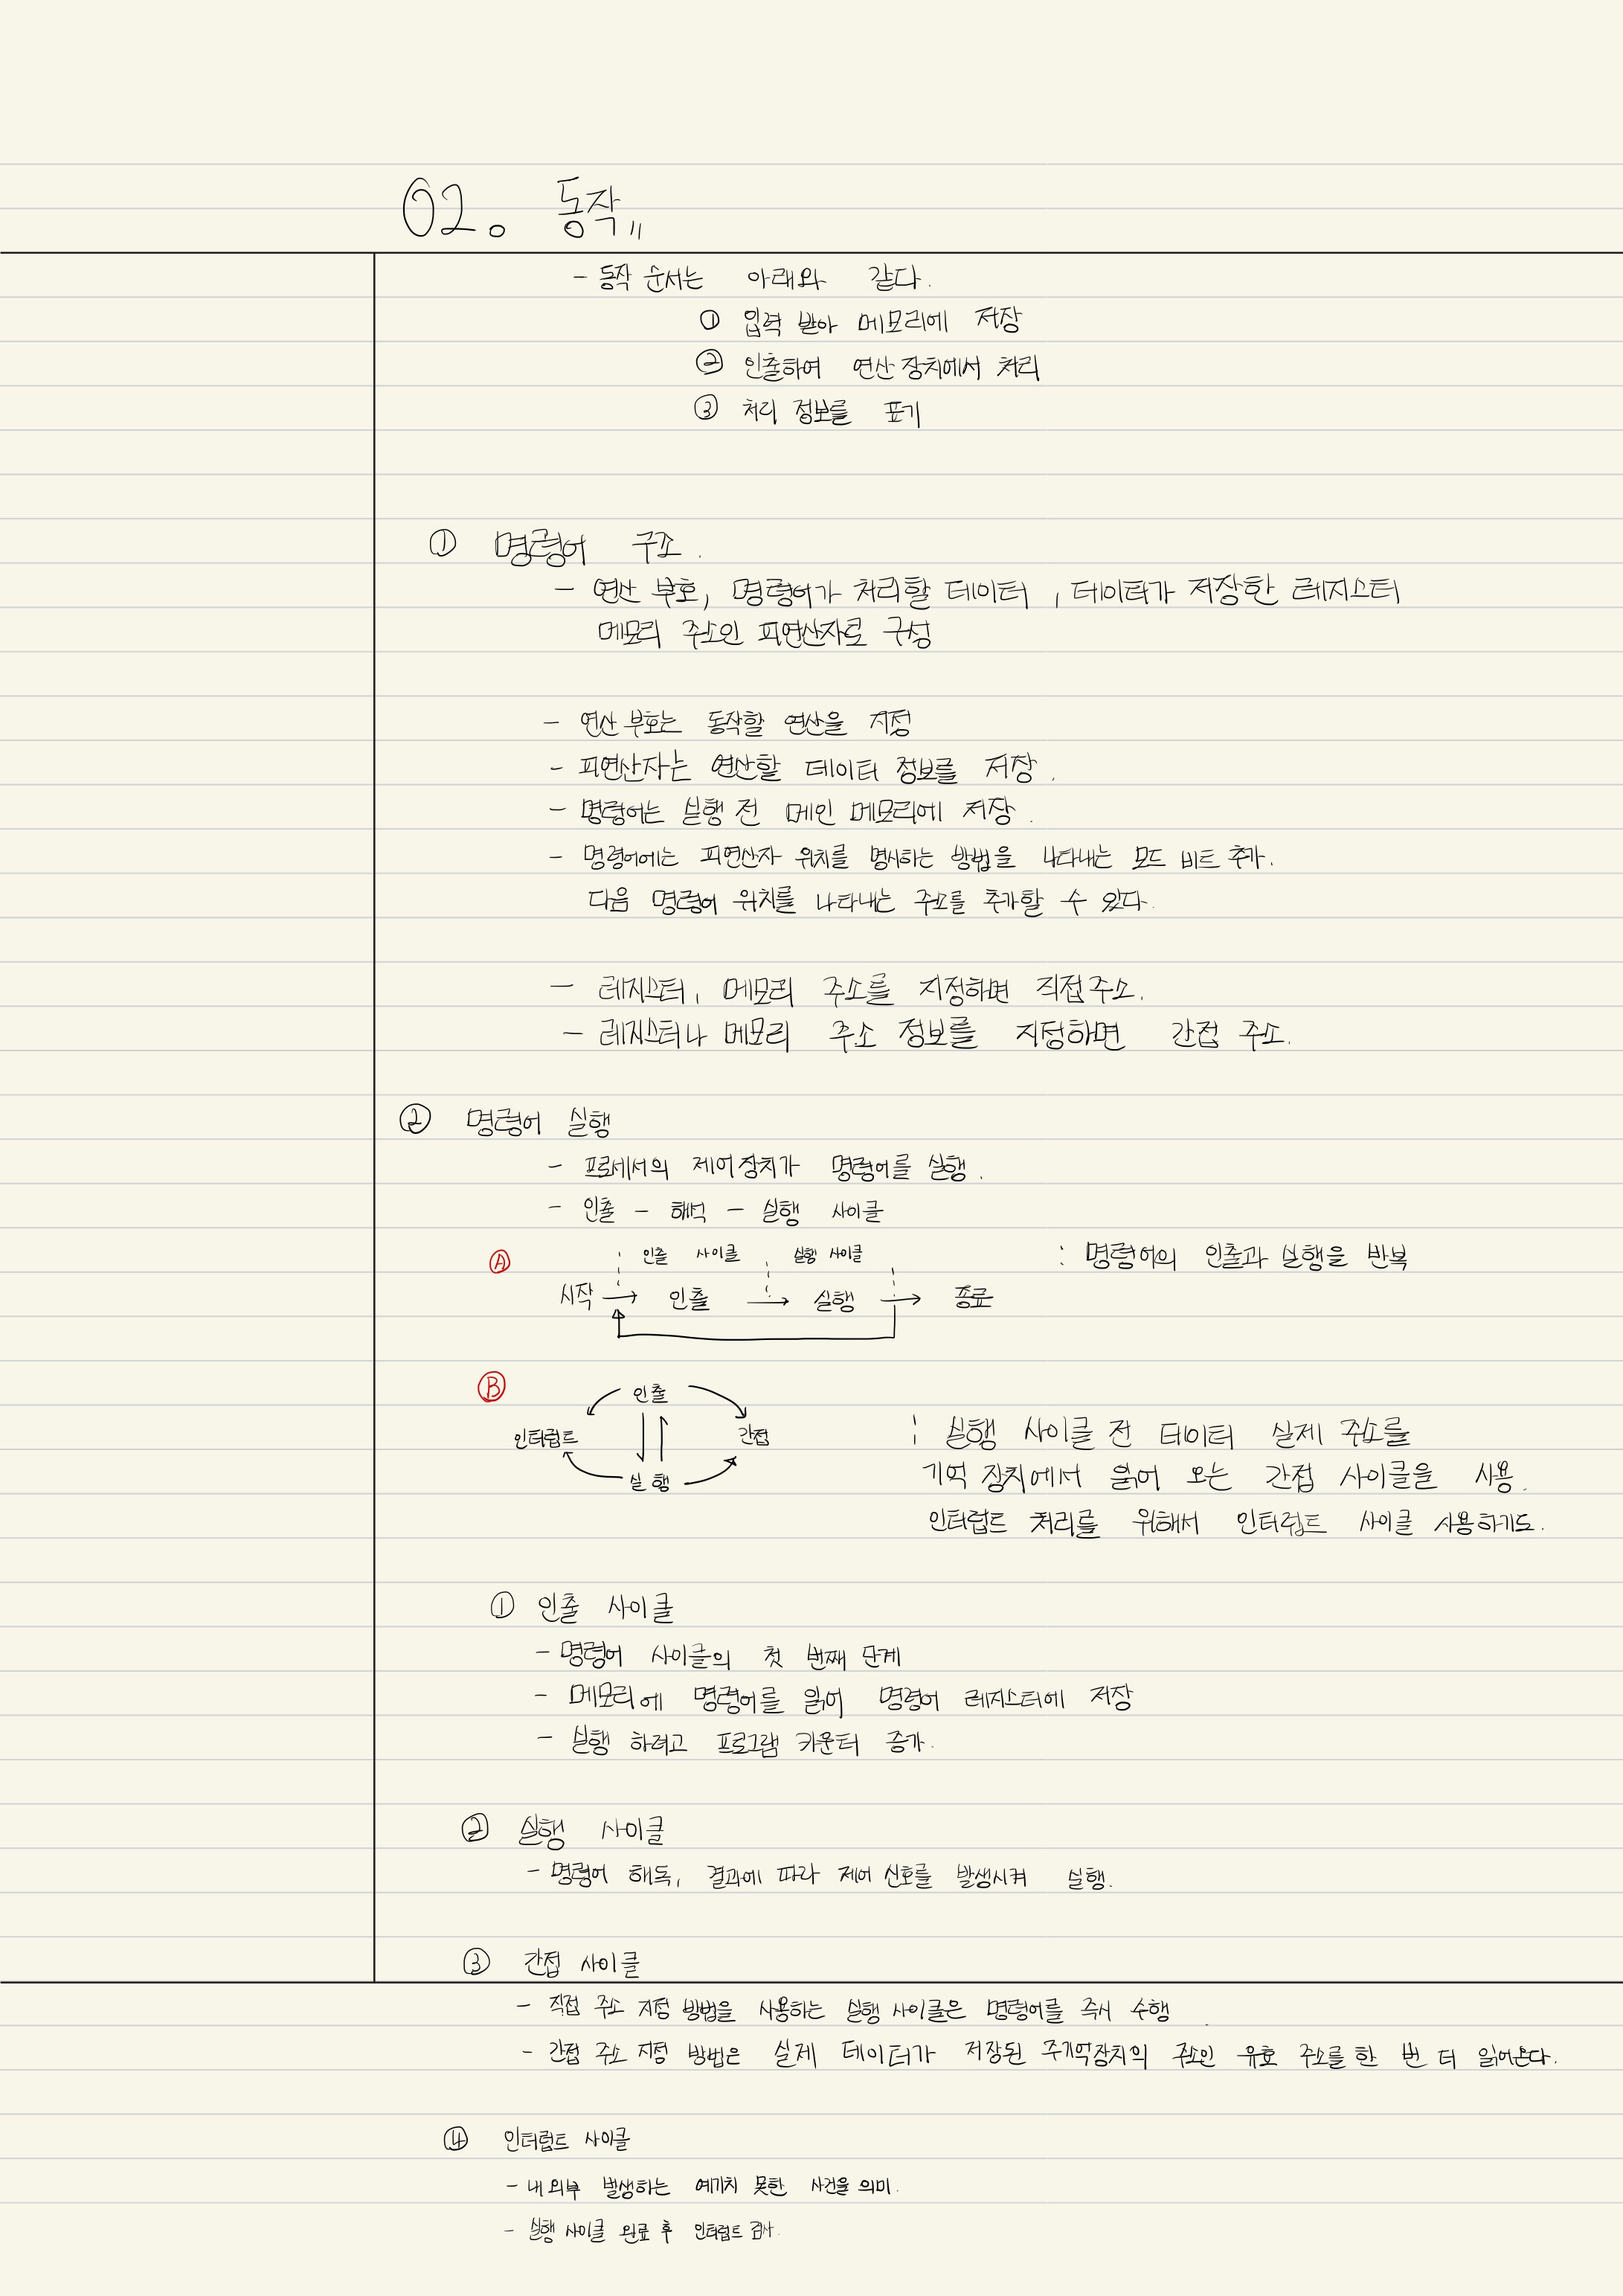 02. 동작
- 동작 순서는 아래와 같다.
① 입력 받아 메모리에 저장
② 인출하여 연산 장치에서 처리
③ 처리 정보를 표기
① 명령어 구조.
- 연산 부호, 명령어가 처리할 데이터, 데이터가 저장한 레지스터
메모리 주소인 피연산자로 구성
- 연산 부호는 동작할 연산을 지정
- 피연산자는 연산할 데이터 정보를 저장.
- 명령어는 실행 전 메인 메모리에 저장.
- 명령어에는 피연산자 위치를 명시하는 방법을 나타내는 모드 비트 추가.
다음 명령어 위치를 나타내는 주소를 추가할 수 있다.
- 레지스터, 메모리 주소를 지정하면 직접주소.
- 레지스터나 메모리 주소 정보를 지정하면 간접 주소.
② 명령어 실행
- 프로세서의 제어장치가 명령어를 실행.
- 인출 - 해석 - 실행 사이클
Ⓐ 인출 사이클 실행 사이클 : 명령어의 인출과 실행을 반복
시작 → 인출 → 실행 → 종료
Ⓑ 인출
인터럽트 간접 : 실행 사이클 전 데이터 실제 주소를
실행 기억 장치에서 읽어 오는 간접 사이클을 사용.
인터럽트 처리를 위해서 인터럽트 사이클 사용하기도.
① 인출 사이클
- 명령어 사이클의 첫 번째 단계
- 메모리에 명령어를 읽어 명령어 레지스터에 저장
- 실행 하려고 프로그램 카운터 증가.
② 실행 사이클
- 명령어 해독, 결과에 따라 제어 신호를 발생시켜 실행.
③ 간접 사이클
- 직접 주소 지정 방법을 사용하는 실행 사이클은 명령어를 즉시 수행.
- 간접 주소 지정 방법은 실제 데이터가 저장된 주기억장치의 주소인 유효 주소를 한 번 더 읽어온다.
④ 인터럽트 사이클
- 내외부 발생하는 예기치 못한 사건을 의미.
- 실행 사이클 완료 후 인터럽트 검사.